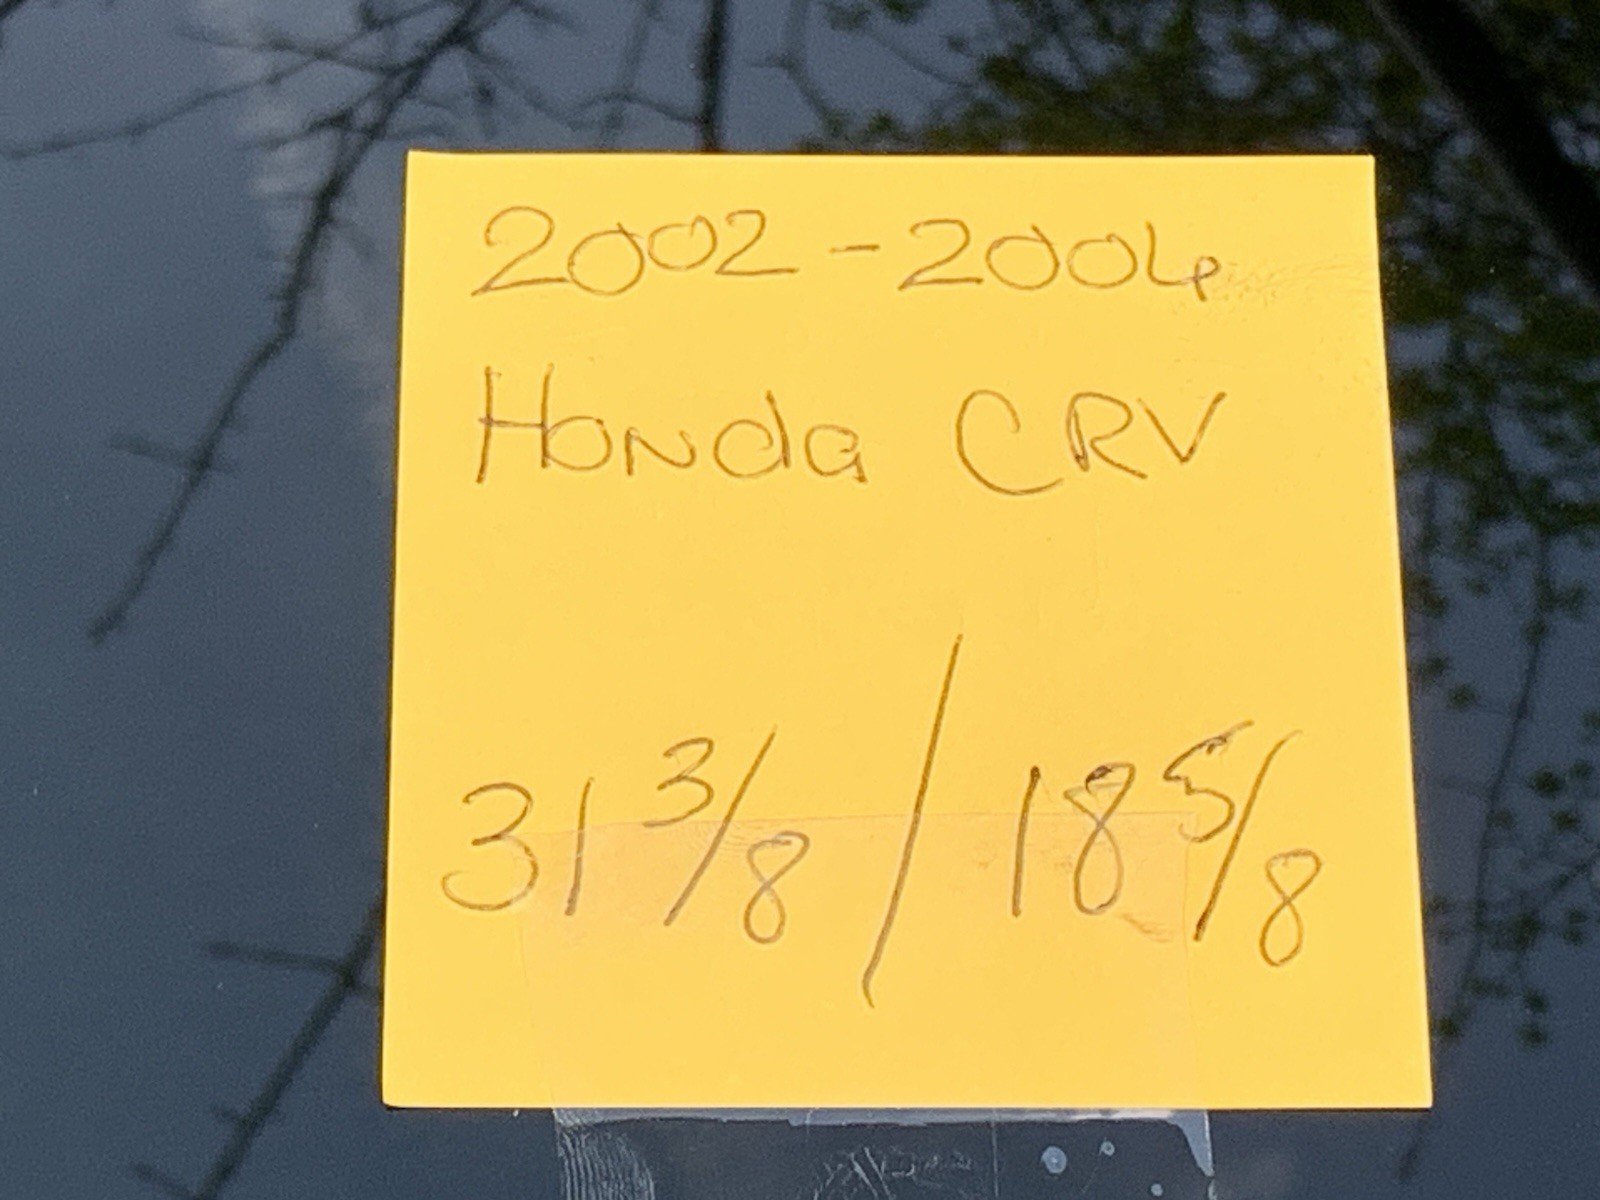 2002 - 2004
Honda CRV
31 3/8 / 18 5/8